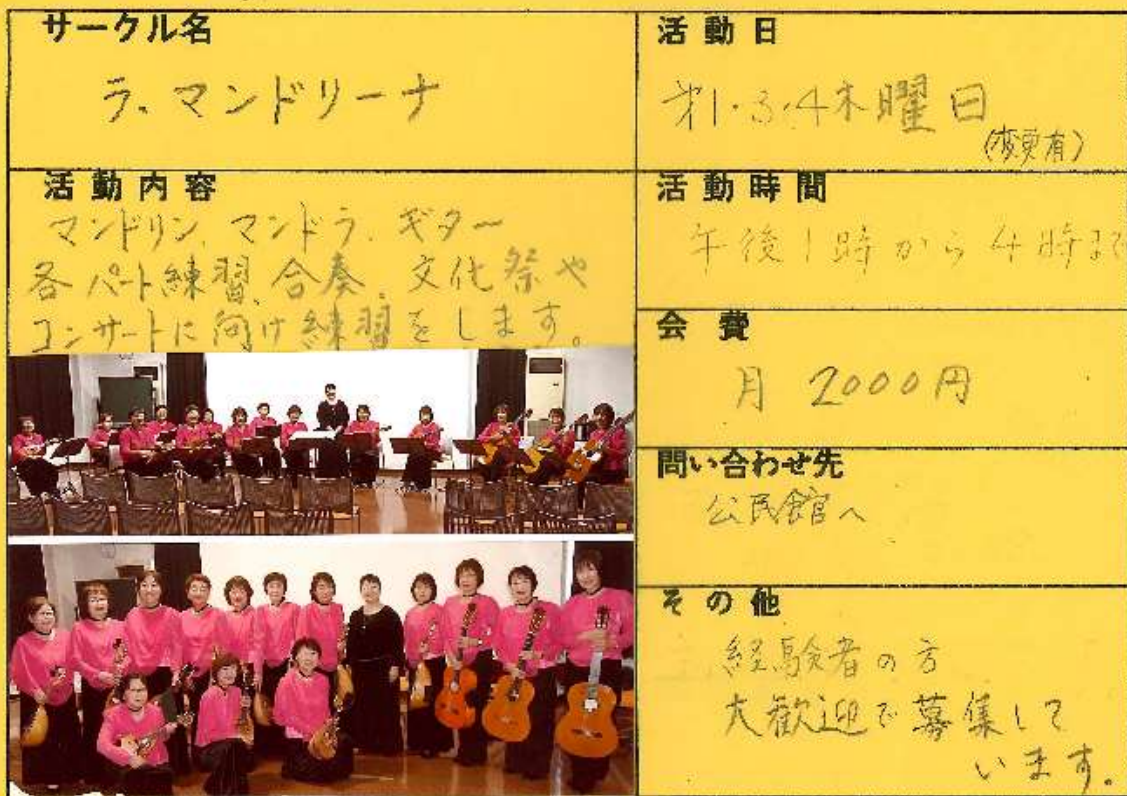 サークル名
ラ.マンドリーナ
活動内容
マンドリン、マンドラ、ギター
各パート練習、合奏、文化祭や
コンサートに向け練習をします。
活動日
才1・3・4木曜日
(変更有)
活動時間
午後1時から4時まで
会費
月 2000円
問い合わせ先
公民館へ
その他
経験者の方
大歓迎で募集して
います。